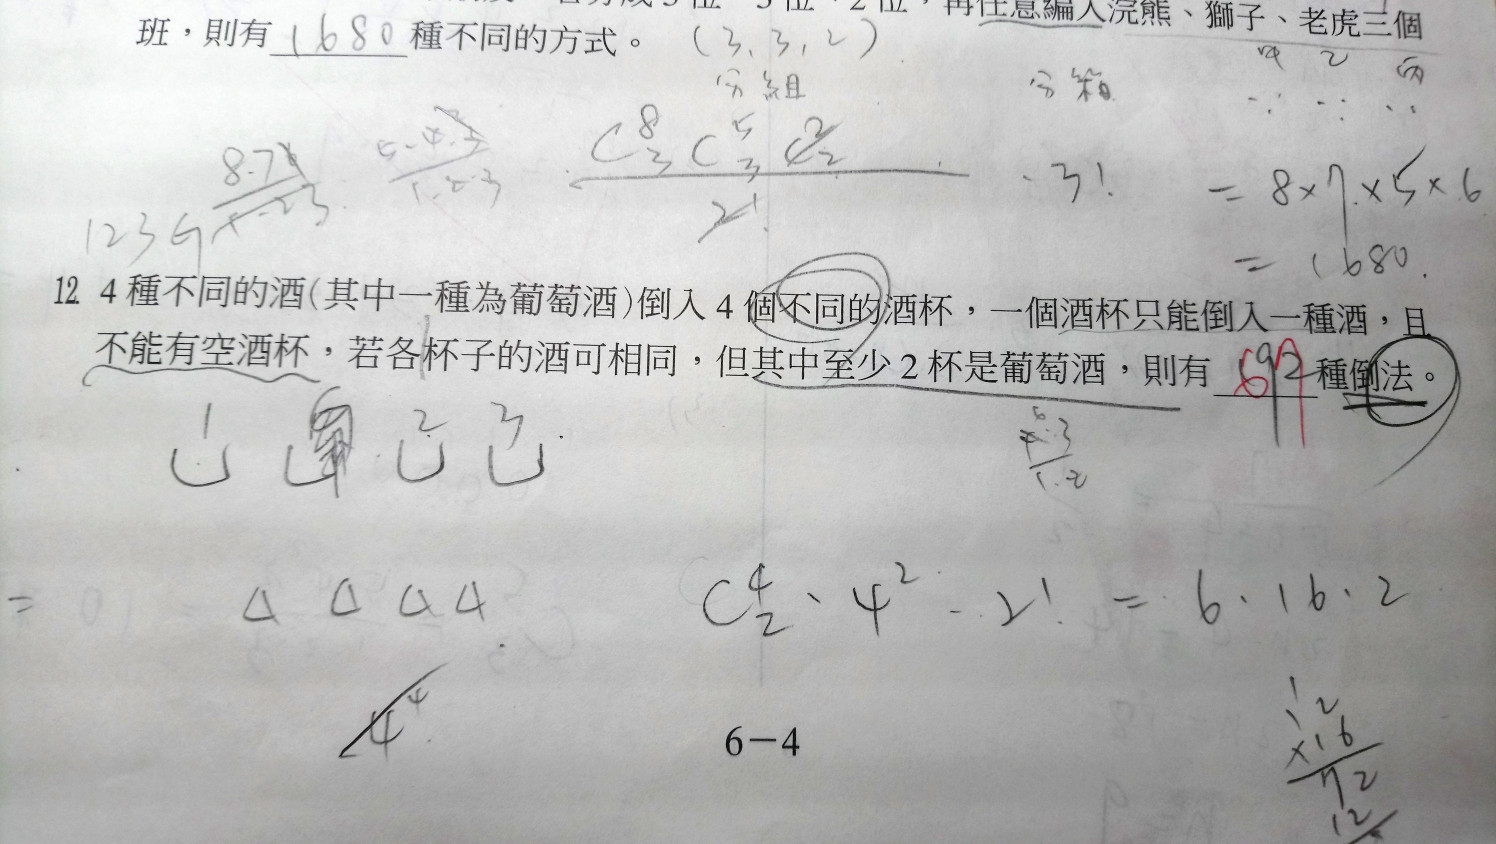 再任意編入浣熊、獅子、老虎三個
班，則有 1680 種不同的方式。 (3,3,2)
分組 分箱
8·7·6 5·4·3 C⁸₃ C⁵₃ C²₂ · 3! = 8×7×5×6
1·2·3 2!
= 1680.
12. 4 種不同的酒(其中一種為葡萄酒)倒入 4 個不同的酒杯，一個酒杯只能倒入一種酒，且
不能有空酒杯，若各杯子的酒可相同，但其中至少 2 杯是葡萄酒，則有 種倒法。
1 2 3
4·3
1·2
4 4 4 4 C⁴₂ · 4² · 2! = 6·16·2
4⁴
6－4
12
×16
72
12